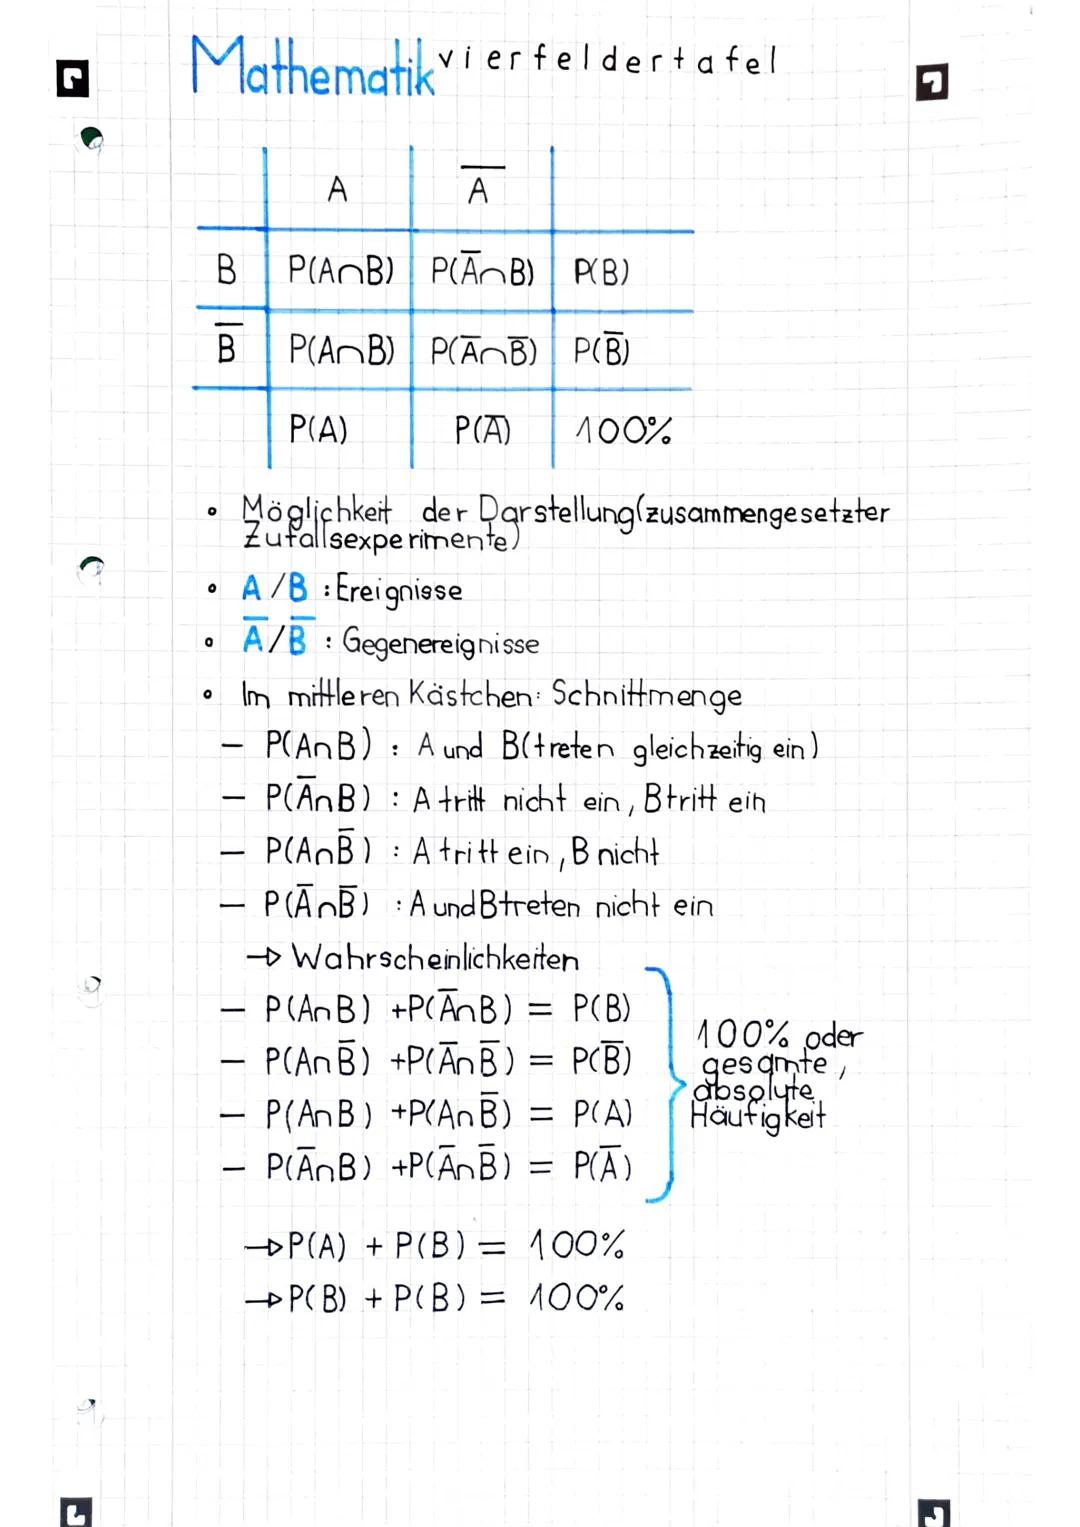 Mathematik vierfeldertafel
A A̅
B P(A∩B) P(A̅∩B) P(B)
B̅ P(A∩B) P(A̅∩B̅) P(B̅)
P(A) P(A̅) 100%
• Möglichkeit der Darstellung(zusammengesetzter
Zufallsexperimente)
• A/B : Ereignisse
• A̅/B̅ : Gegenereignisse
• Im mittleren Kästchen: Schnittmenge
– P(A∩B) : A und B(treten gleichzeitig ein)
– P(A̅∩B) : A tritt nicht ein, B tritt ein
– P(A∩B̅) : A tritt ein, B nicht
– P(A̅∩B̅) : A und B treten nicht ein
→ Wahrscheinlichkeiten
– P(A∩B) +P(A̅∩B) = P(B)
– P(A∩B̅) +P(A̅∩B̅) = P(B̅)
– P(A∩B) +P(A∩B̅) = P(A)
– P(A̅∩B) +P(A̅∩B̅) = P(A̅)
100% oder
gesamte,
absolute
Häufigkeit
→ P(A) + P(B) = 100%
→ P(B) + P(B) = 100%